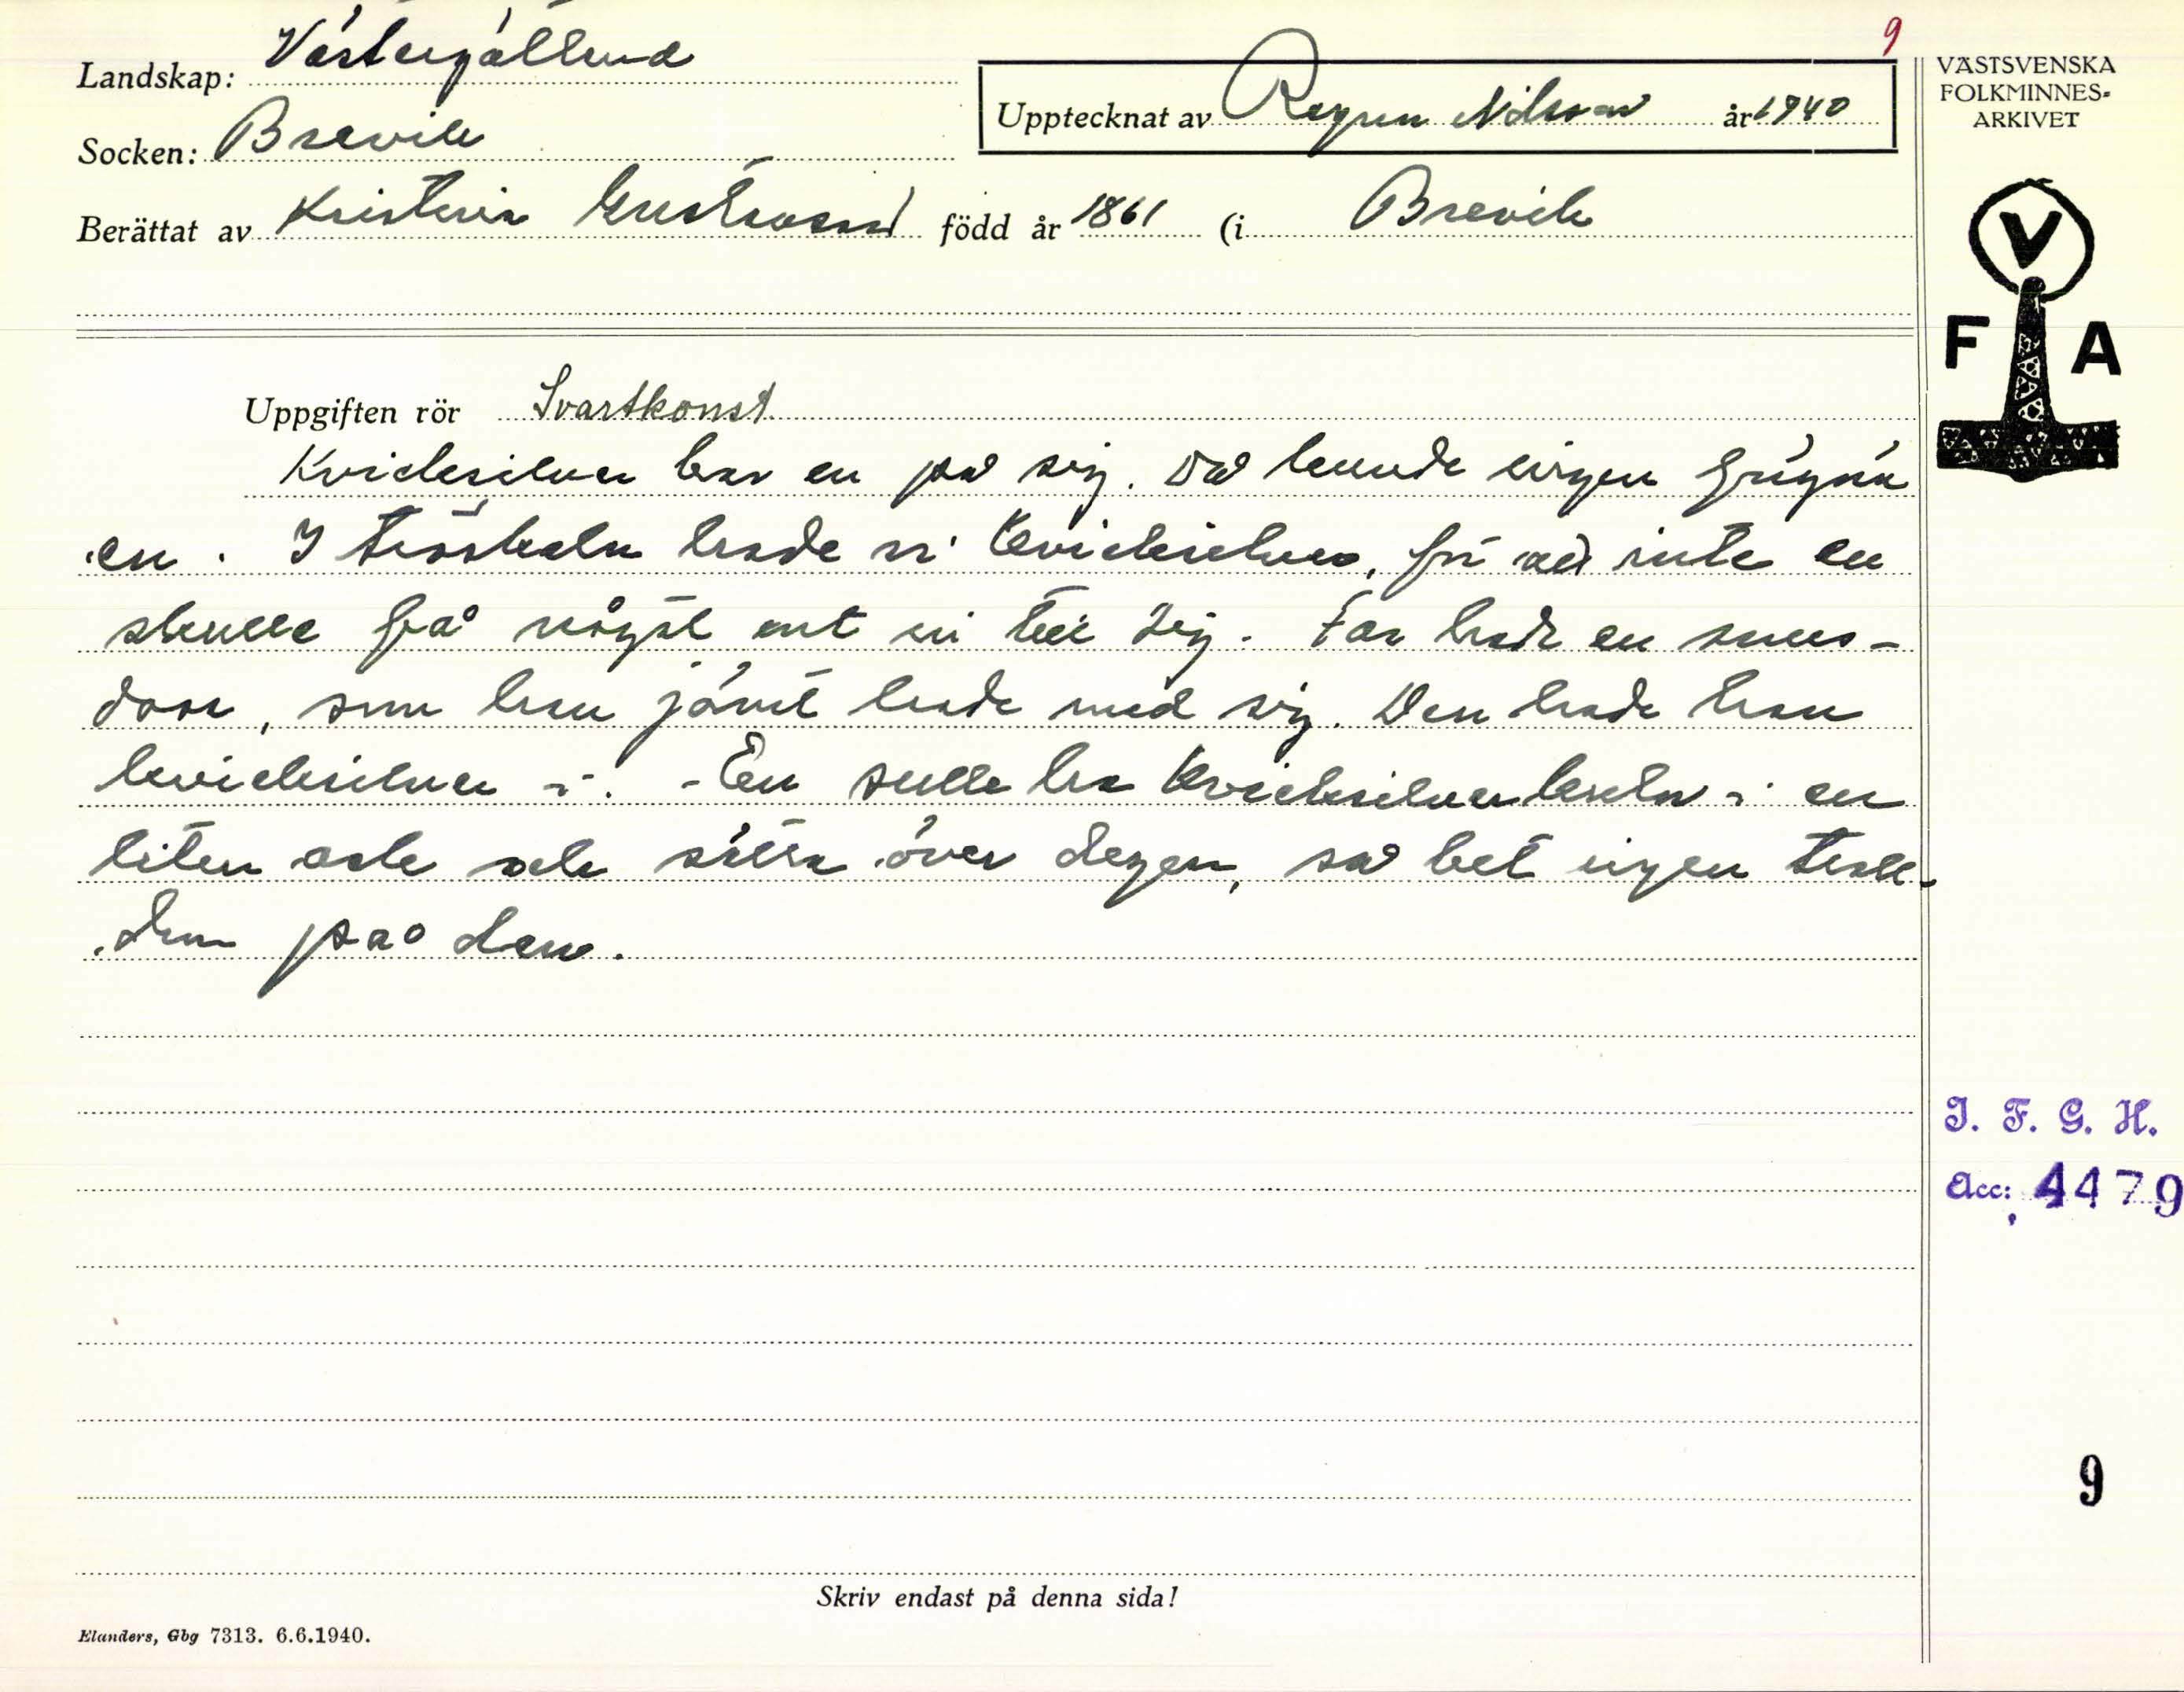 9
Landskap: Västergötland
Socken: Brevik
Upptecknat av Ragnar Nilsson år 1940
Berättat av Kristina Gustavsson född år 1861 (i Brevik
VÄSTSVENSKA
FOLKMINNES-
ARKIVET
V
F A
Uppgiften rör Svartkonst
Kvicksilver bar en på sig. Då kunde ingen förgöra
en. I tröskeln hade vi kvicksilver, för att inte en
skulle få något ont in till sig. Far hade en snus-
dosa, som han jämt hade med sig. Den hade han
kvicksilver i. - En sulle ha kvicksilver i en
liten ask och sätta över degen, så bet ingen troll-
dom på den.
I. F. G. H.
Acc: 4479
9
Skriv endast på denna sida!
Elanders, Gbg 7313. 6.6.1940.